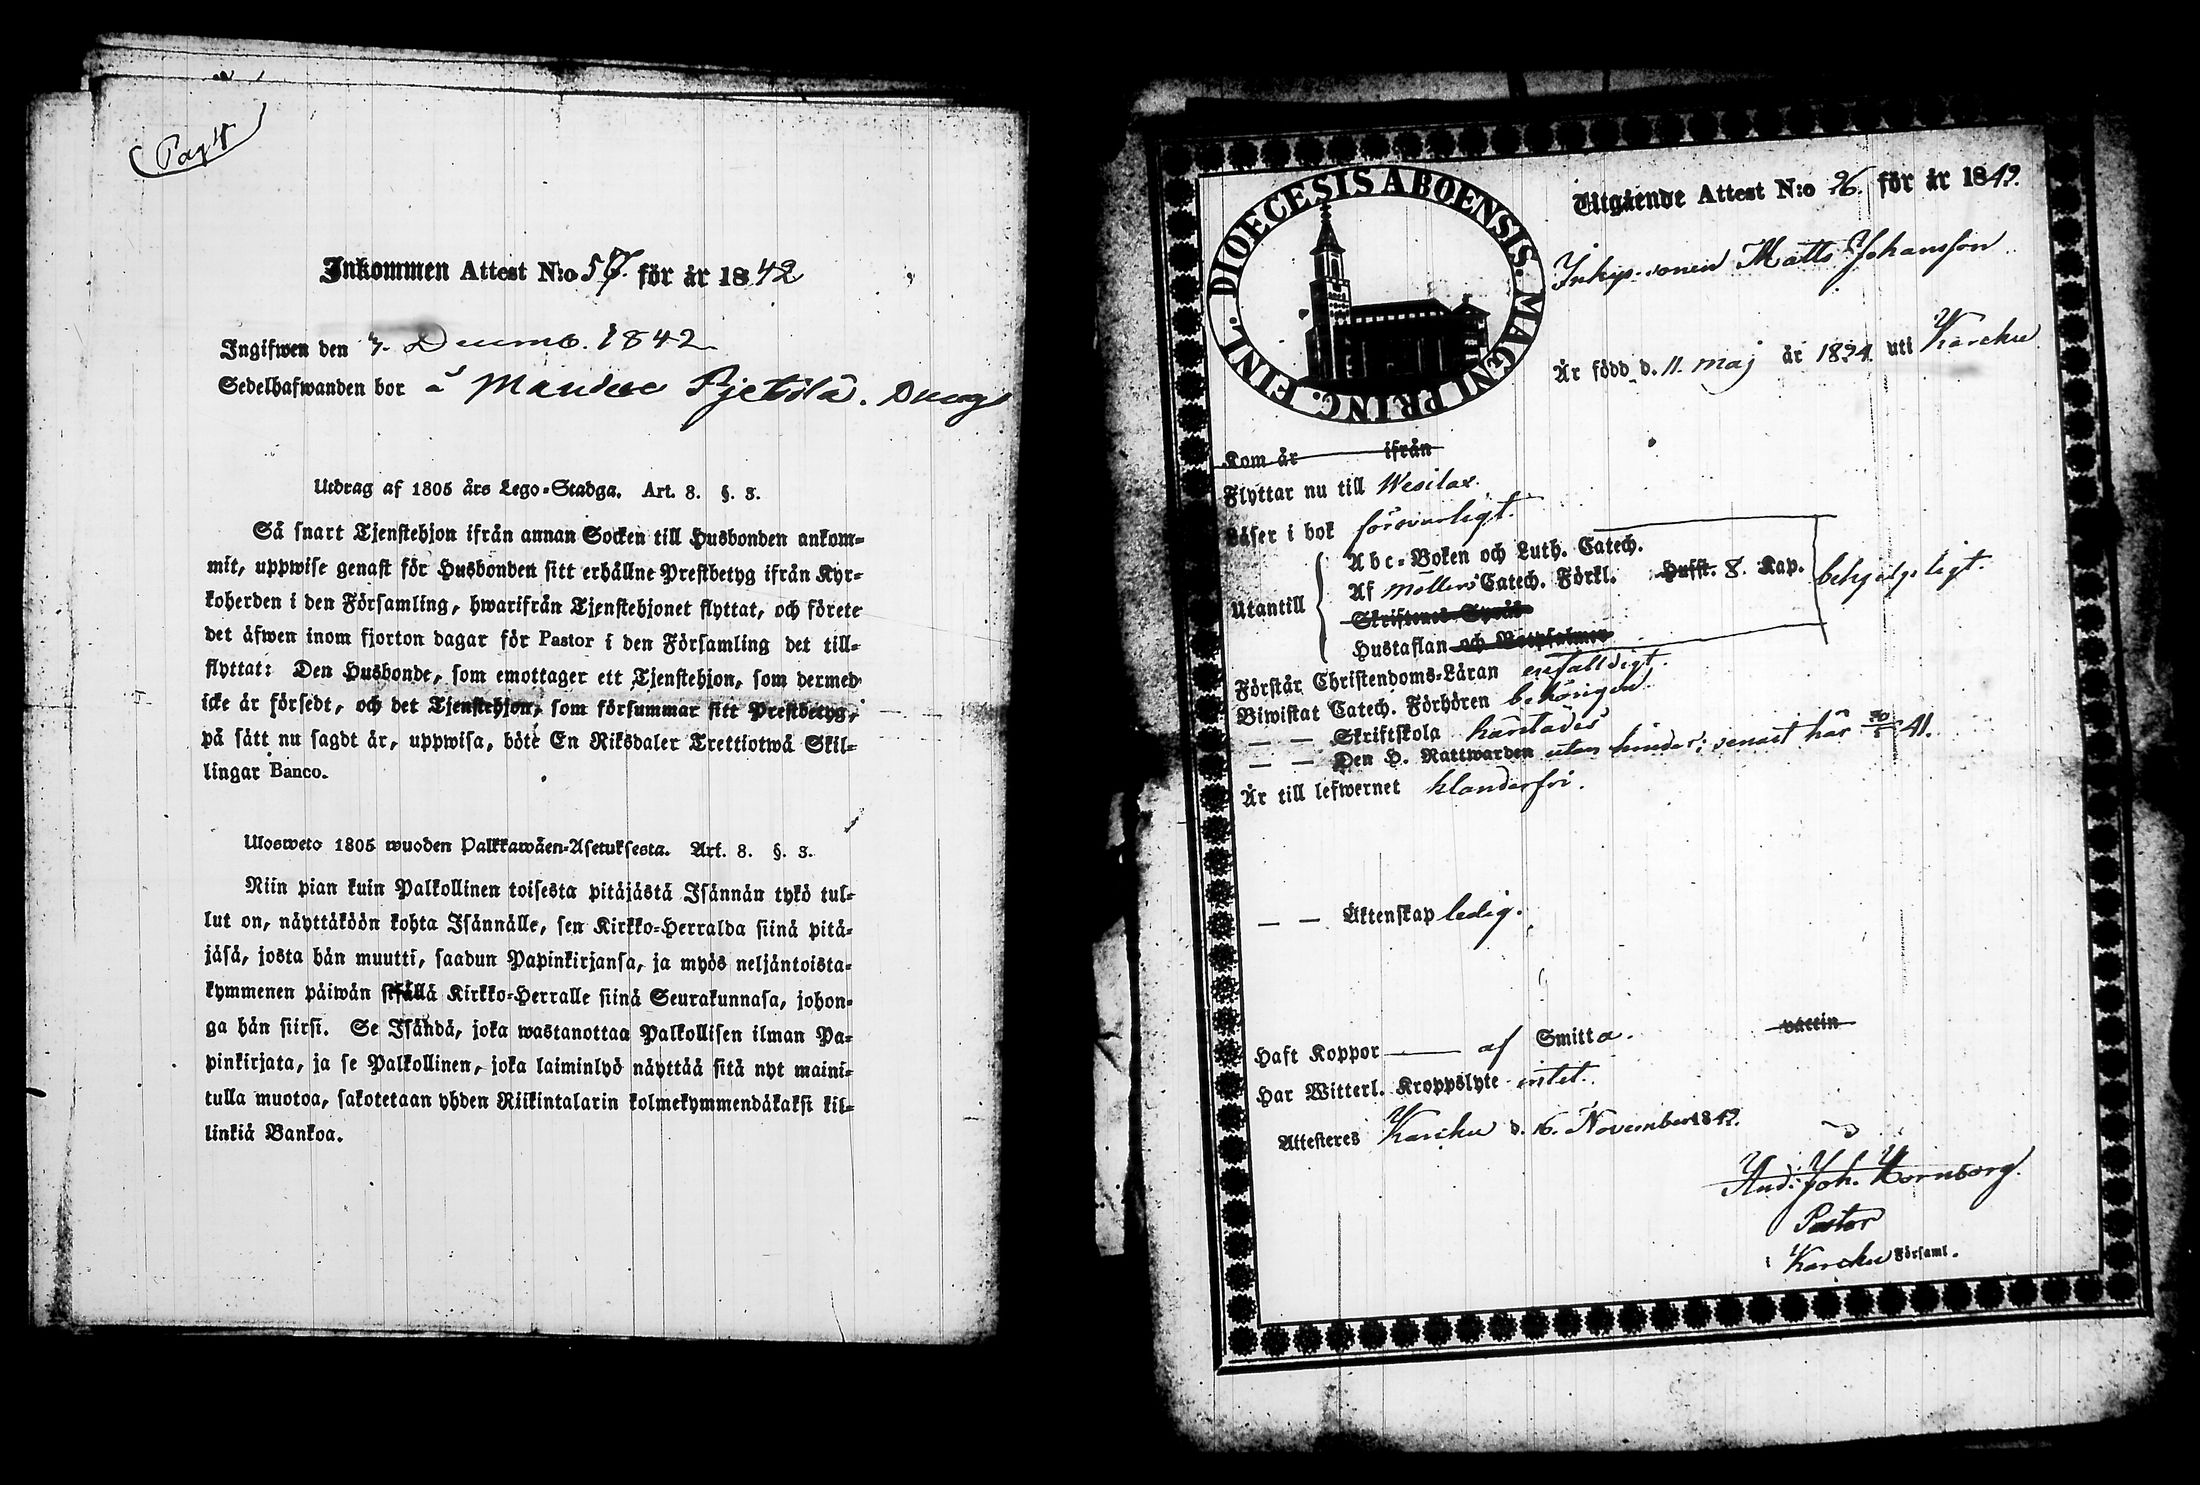 Pag 4
Inkommen Attest N:o 57. för år 1842
Ingifwen den 4. Decemb. 1842
Sedelhafwanden bor å Mandee Pjetilä. Dreng
Utdrag af 1805 års Lego-Stadga. Art. 8. §. 3.
Så snart Tjenstehjon ifrån annan Socken till Husbonden ankom-
mit, uppwise genast för Husbonden sitt erhållne Prestbetyg ifrån Kyr-
koherden i den Församling, hwarifrån Tjenstehjonet flyttat, och förete
det äfwen inom fjorton dagar för Pastor i den Församling det till-
flyttat: Den Husbonde, som emottager ett Tjenstehjon, som dermed
icke är försedt, och det Tjenstehjon, som försummar sitt Prestbetyg,
på sätt nu sagdt är, uppwisa, böte En Riksdaler Trettiotwå Skil-
lingar Banco.
Ulosweto 1805 wuoden Palkkawäen-Asetuksesta. Art. 8. §. 3.
Niin pian kuin Palkollinen toisesta pitäjästä Isännän tykö tul-
lut on, näyttäköön kohta Isännälle, sen Kirkko-Herralda siinä pitä-
jäsä, josta hän muutti, saadun Papinkirjansa, ja myös neljäntoista-
kymmenen päiwän sisällä Kirkko-Herralle siinä Seurakunnasa, johon-
ga hän siirsi. Se Isändä, joka wastanottaa Palkollisen ilman Pa-
pinkirjata, ja se Palkollinen, joka laiminlyö näyttää sitä nyt maini-
tulla muotoa, sakotetaan yhden Riikintalarin kolmekymmendäkaksi kil-
linkiä Bankoa.
DIOECESIS ABOENSIS. MAGNI PRINC. FINL.
Utgående Attest N:o 26. för år 1842.
Inhys-sonen Matts Johansson
Är född d. 11. maj år 1824. uti Karcku
Kom år ifrån
Flyttar nu till Wesilax.
Läser i bok försvarligt.
Utantill
Abc-Boken och Luth. Catech.
Af möllers Catech. Förkl. Hufst. 8. Kap. behjelpligt.
Skriftenes Språk
Hustaflan och Botpsalmer
Förstår Christendoms-Läran enfalldigt.
Biwistat Catech. Förhören behörigen
— — Skriftskola härstädes
— — Den H. Nattwarden utan hinder; senast här 41.
Är till lefwernet klanderfri.
— — Äktenskap ledig.
Haft Koppor — af Smitta. vaccin
Har Witterl. Kroppslyte intet.
Attesteres Karcku d. 16. November 1842.
And: Joh. Hornborg.
Pastor
i Karcku Församl.